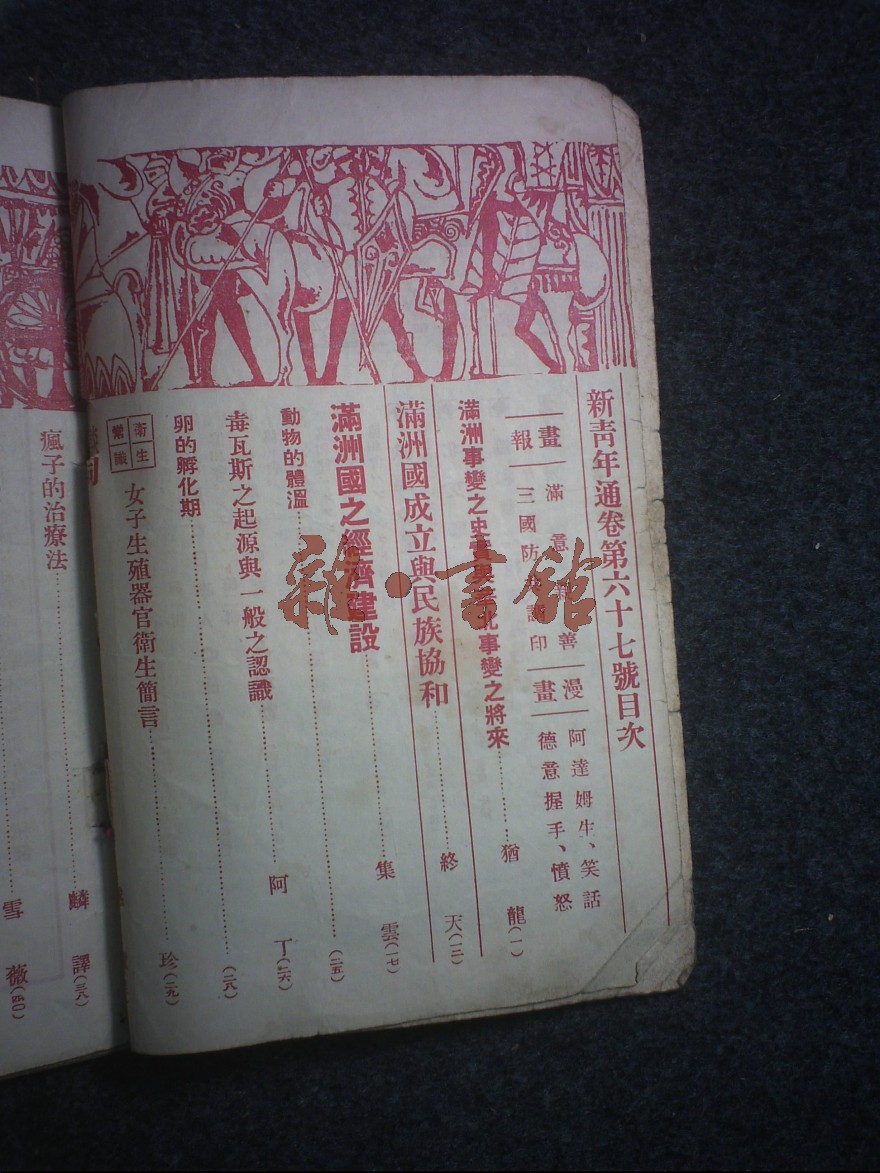 新青年通卷第六十七號目次
畫報
滿意親善
三國防共調印
漫畫
阿達姆生、笑話
德意握手、憤怒
滿洲事變之史實與華北事變之將來……猶龍(一)
滿洲國成立與民族協和……終天(一三)
滿洲國之經濟建設……集雲(一七)
動物的體溫……(二五)
毒瓦斯之起源與一般之認識……阿丁(二六)
卵的孵化期……(二八)
衛生常識
女子生殖器官衛生簡言……珍(二九)
瘋子的治療法……麟譯(三八)
雪薇(50)
雜·書館